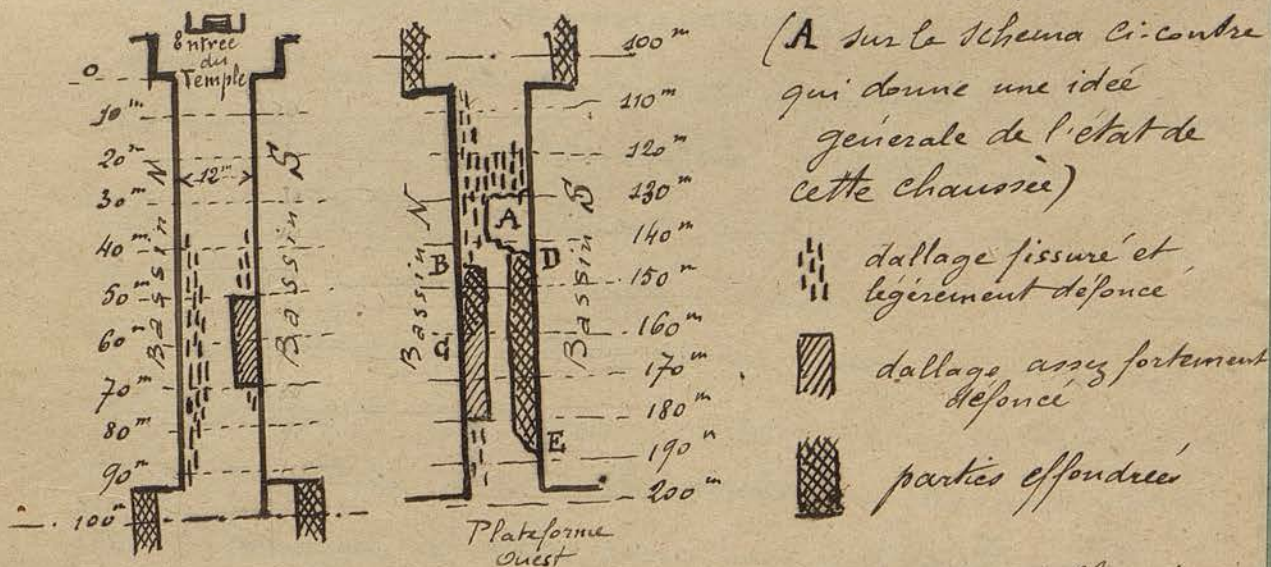 Entrée
du
Temple
0
10m
20m
30m
40m
50m
60m
70m
80m
90m
100m
12m
Bassin N
Bassin S
100m
110m
120m
130m
140m
150m
160m
170m
180m
190m
200m
Bassin N
Bassin S
A
B
C
D
E
Plateforme
Ouest
(A sur le schema ci-contre
qui donne une idée
générale de l'état de
cette chaussée)
dallage fissuré et
légérement défoncé
dallage assez fortement
défoncé
parties effondrées